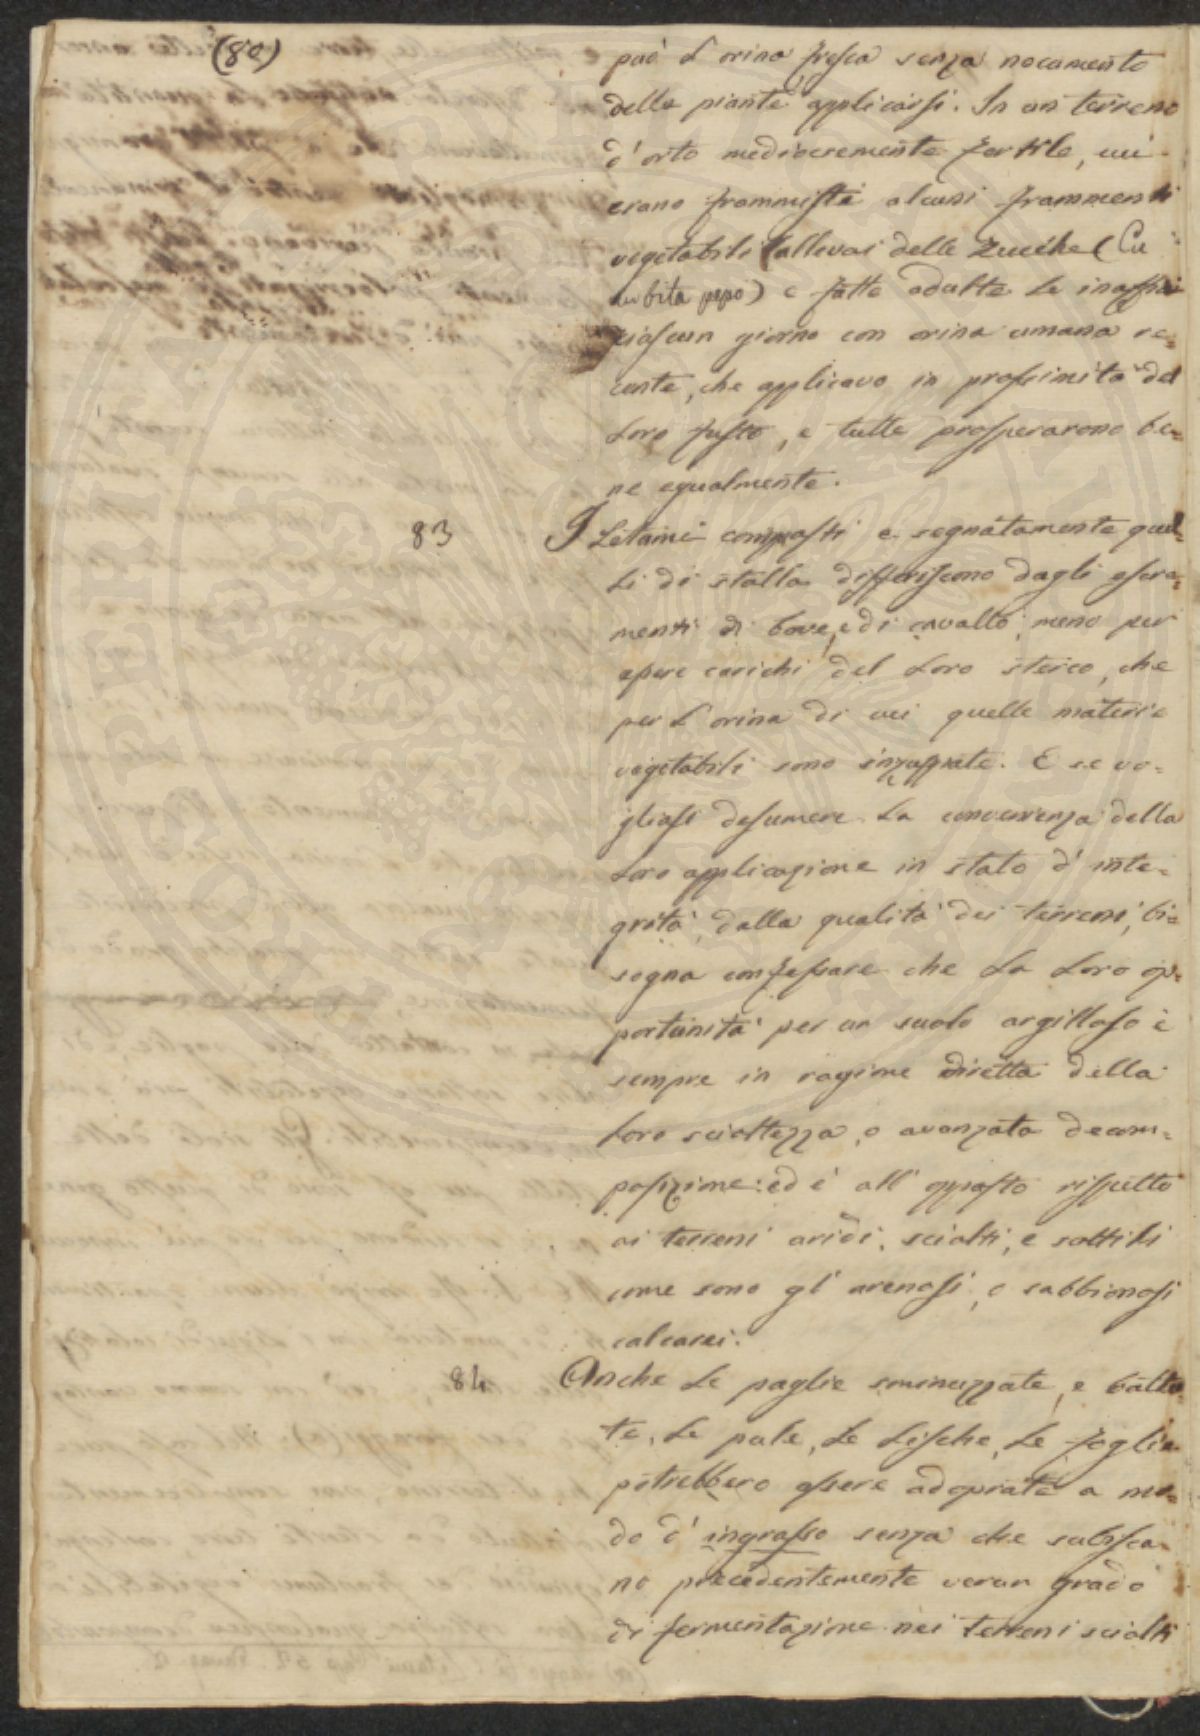 (80)
può l'orina fresca senza nocumento
delle piante applicarsi. In un terreno
d'orto mediocremente fertile, cui
erano frammiste alcuni frammenti
vegetabili (allevai delle zucche (Cu
curbita pepo) e fatte adulte le inaffiai
ciascun giorno con orina umana re=
cente, che applicavo in prossimità del
loro fusto, e tutte prosperarono be=
ne egualmente.
83 I letami composti e segnatamente quel=
li di stalla differiscono dagli escre=
menti di bove, e di cavallo, meno per
essere carichi del loro sterco, che
per l'orina di cui quelle materie
vegetabili sono inzuppate. E se vo=
gliasi desumere la convenienza della
loro applicazione in stato d'inte=
grità, dalla qualità dei terreni, bi=
sogna confessare che la loro op=
portunità per un suolo argilloso è
sempre in ragione diretta della
loro scioltezza, o avanzata decom=
posizione: ed è all'opposto rispetto
ai terreni aridi, sciolti, e sottili
come sono gl'arenosi, o sabbionosi
calcarei.
84 Anche le paglie sminuzzate, e battu=
te, le pule, le lische, le foglie
potrebbero essere adoprate a mo=
do d'ingrasso senza che subisca=
no precedentemente verun grado
di fermentazione nei terreni sciolti